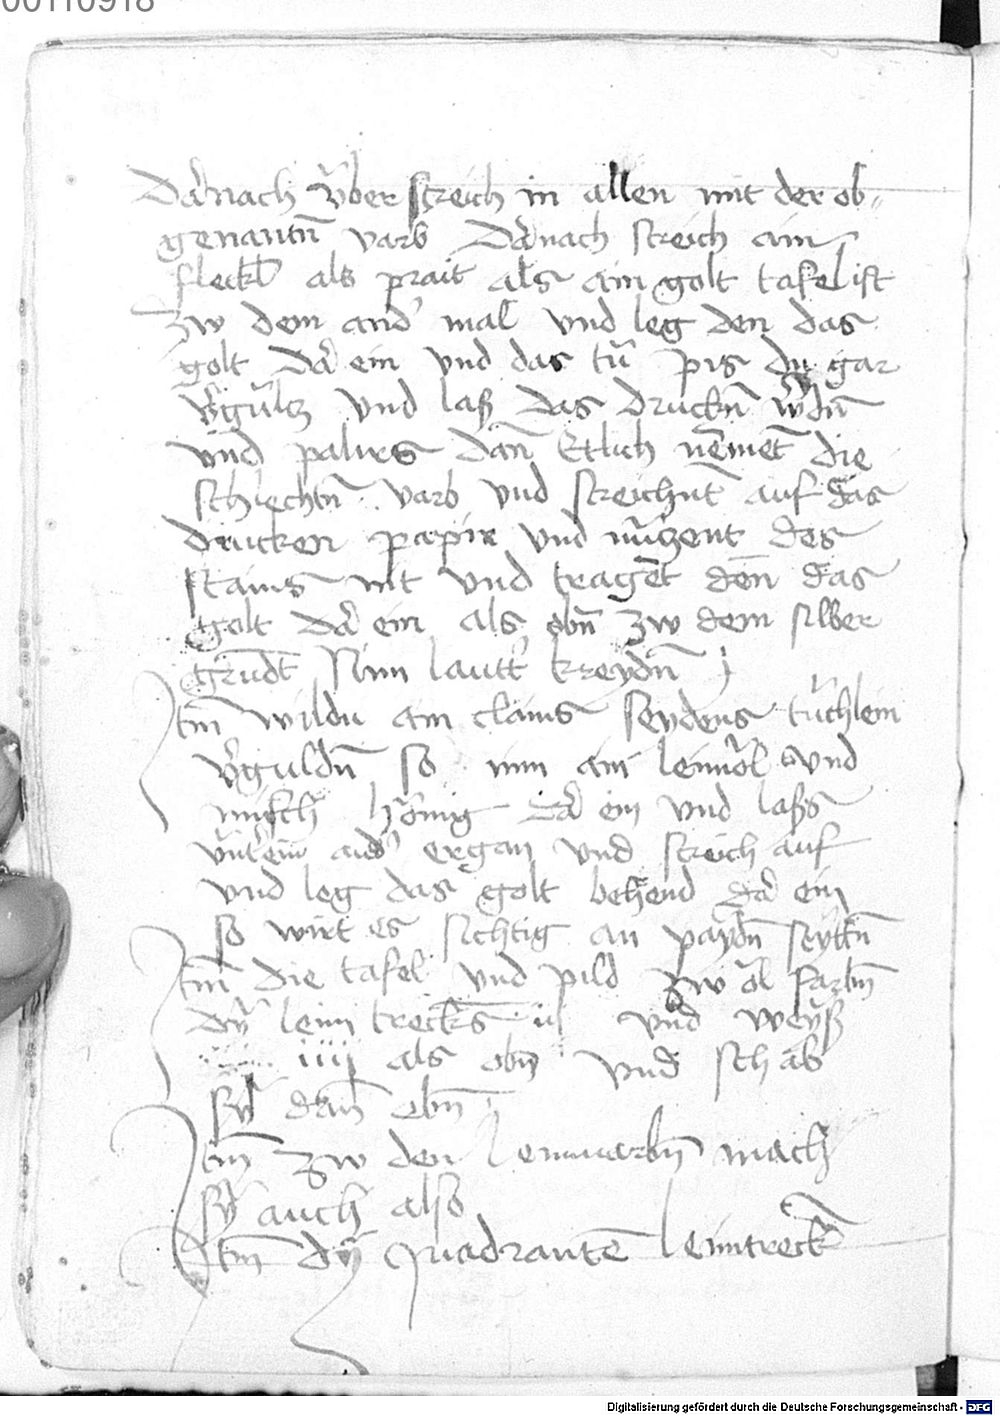 00110918
Darnach vber streich in allen mit der ob„
genantn varb Darnach streich ain
fleckl als prait als ain golt tafel ist
zw dem and' mal vnd leg den das
golt Dar ein vnd das tu pis du gar
v'gultz vnd laß das drucken
vnd palirs dan Etlich nemet die
schlechtn varb vnd streichnt auf das
drucken papir vnd nutzent des
stains nit vnd tragent den das
golt Dar ein als obn zw dem silber
grundt Nim lautt' kreydn j
Itm wildu ain clains seydens tuchlein
v'guldn so nim ain leinnol vnd
misch honig dar ein vnd lass
vnt'ein and' ergan vnd streich auf
vnd leg das golt behend dar ein
so wirt es sichtig an paydn seyttn
Itm die tafel vnd pild zw ol farbn
dy leim trecks ij vnd weyß
iiij als obn vnd schab
sy dann ebn
Itm zw den leimvarbn mach
sy auch also
Itm dy quadranten leimtreck
Digitalisierung gefördert durch die Deutsche Forschungsgemeinschaft - DFG